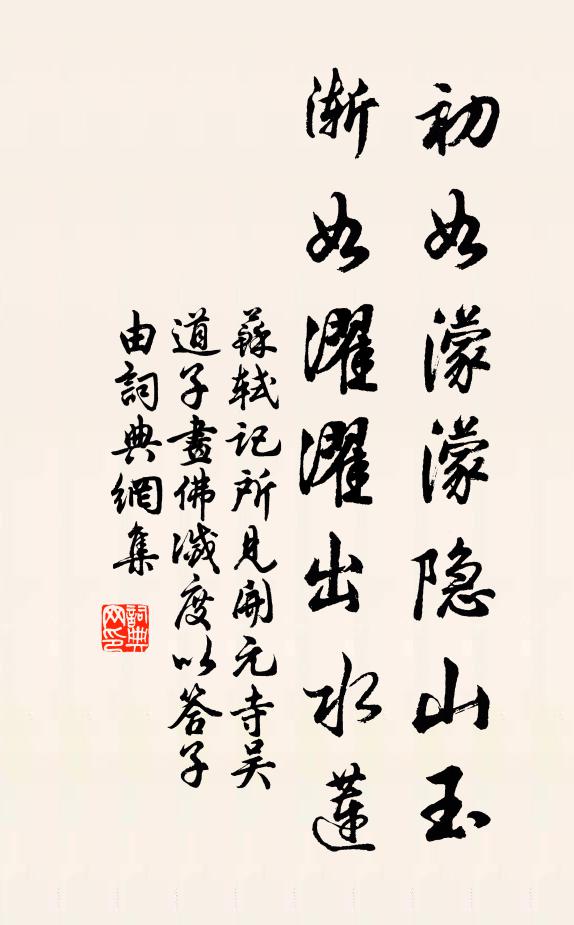 初如濛濛隐山玉
渐如濯濯出水蓮
蘇軾记所見開元寺吴
道子畫佛滅度以答子
由詞典網集
詞典
网印